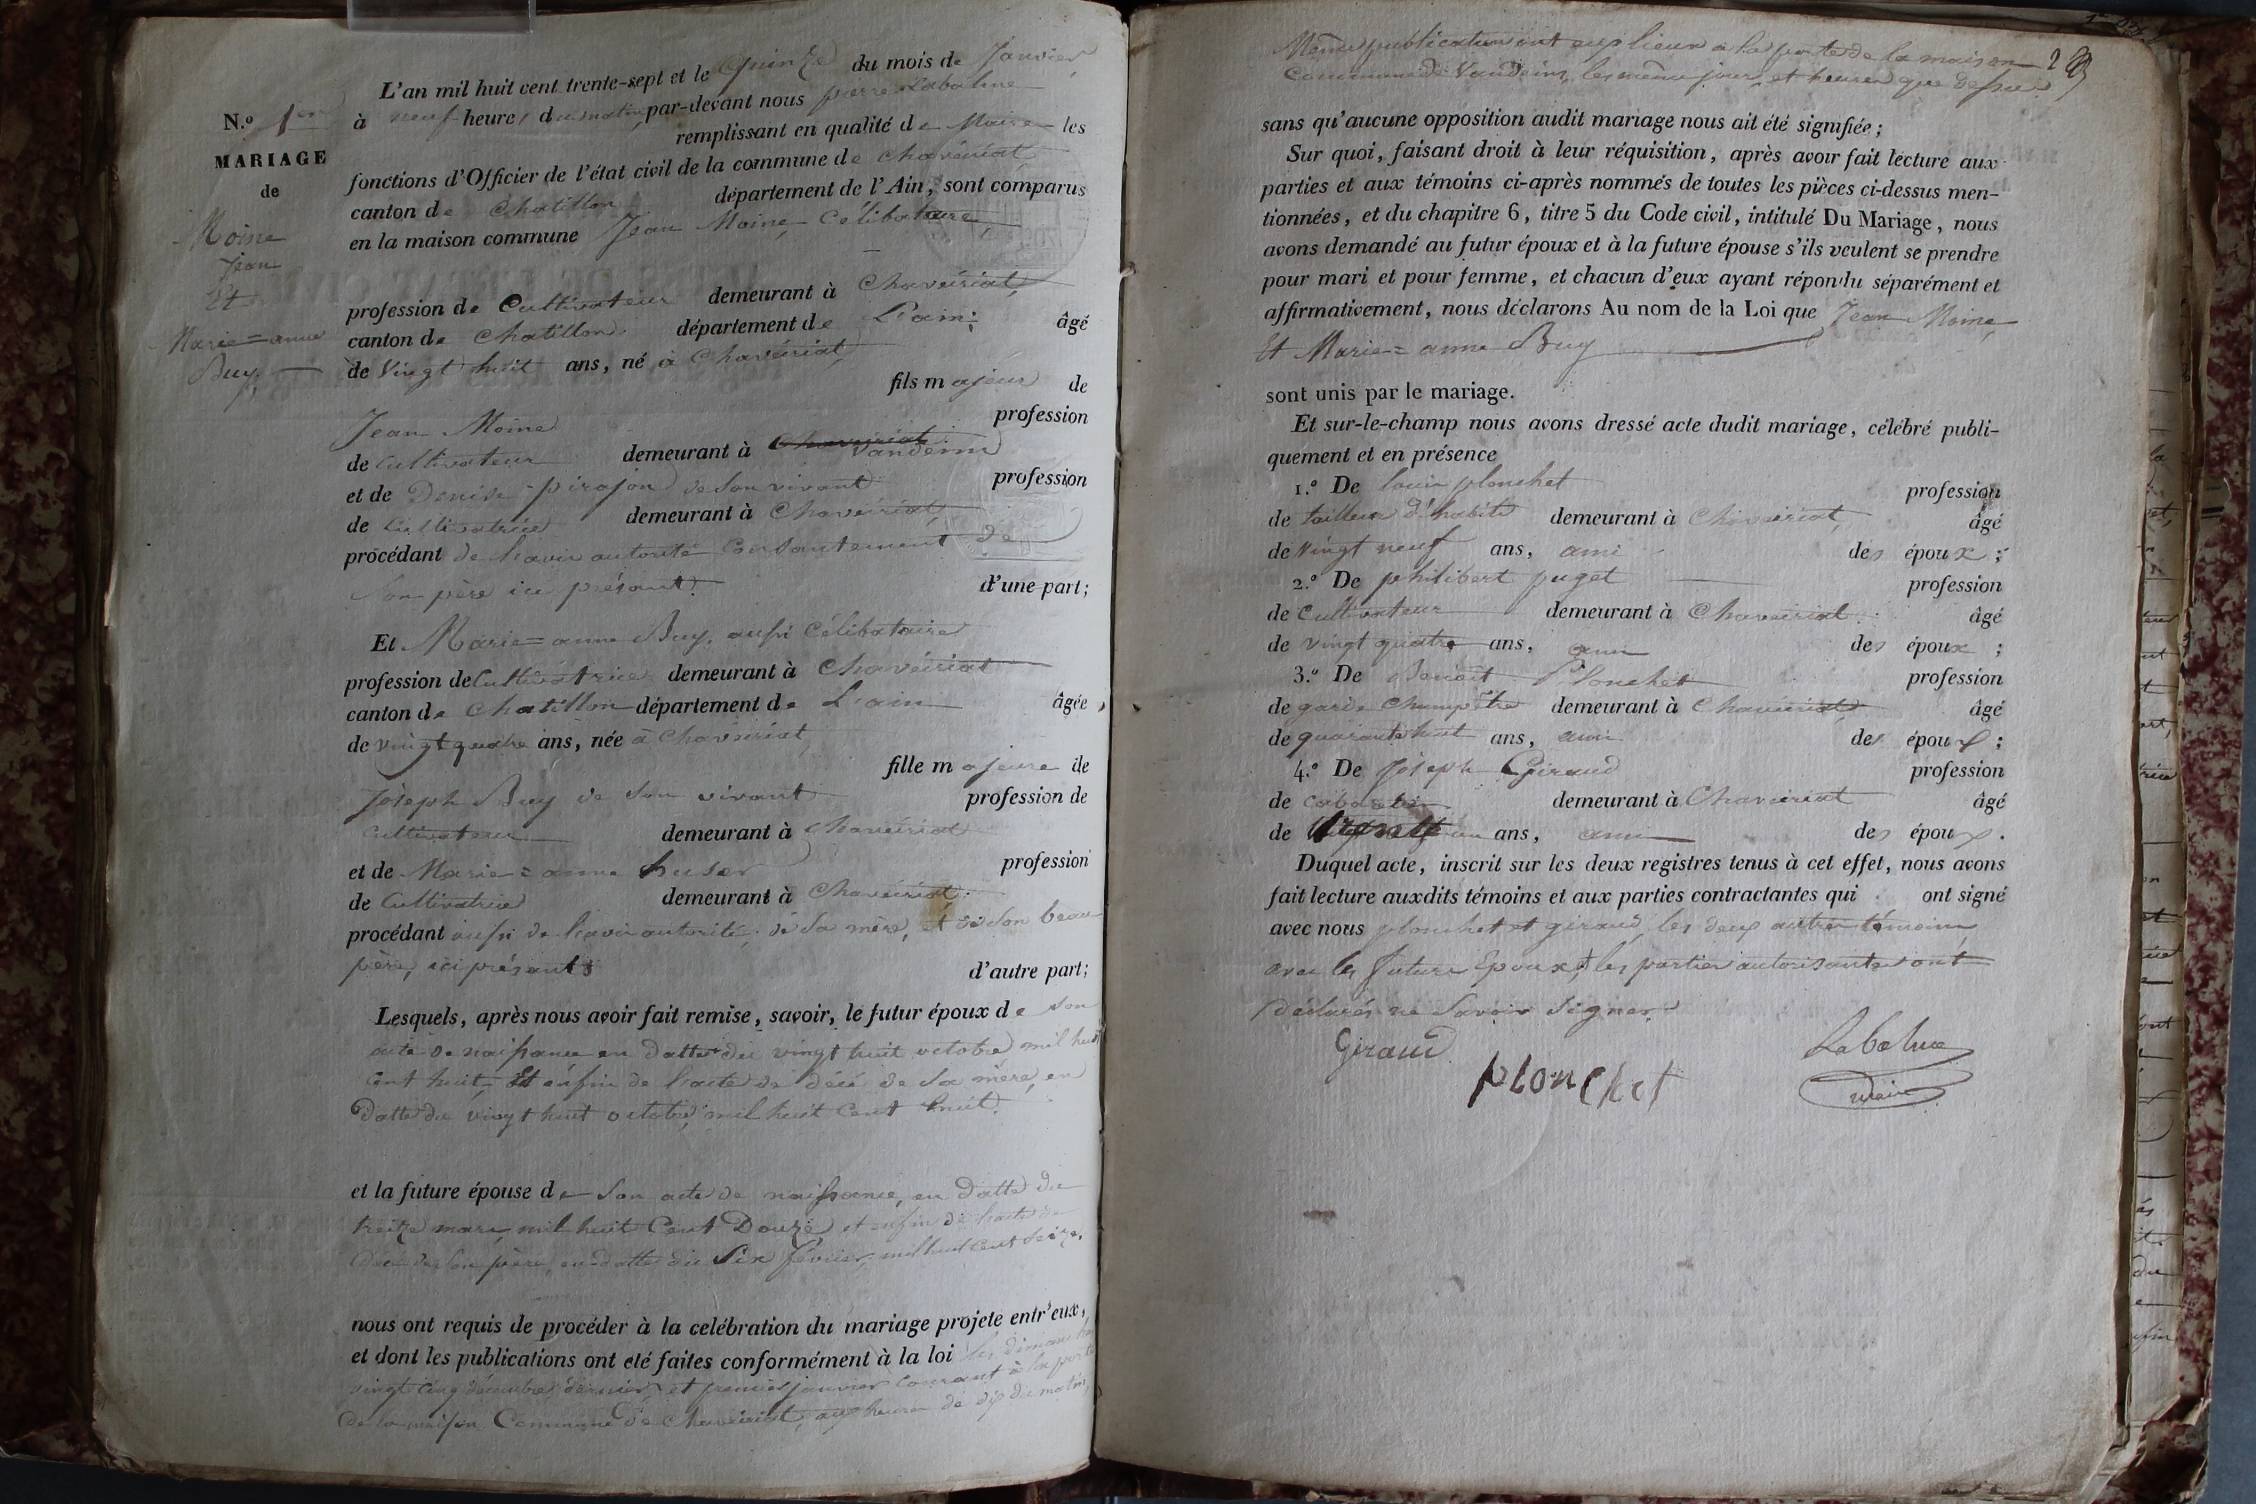 N.º 1er
MARIAGE
de
Moine
Jean
Et
Marie=anne
Buy
L'an mil huit cent trente-sept et le quinze du mois de Janvier
à neuf heures du matin, par-devant nous pierre Labalme
remplissant en qualité de Maire les
fonctions d'Officier de l'état civil de la commune de chaveiriat,
canton de Chatillon département de l'Ain, sont comparus
en la maison commune Jean Moine, Célibataire,
profession de Cultivateur demeurant à Chaveiriat,
canton de Chatillon département de L'ain; âgé
de Vingt huit ans, né à Chaveiriat,
fils majeur de
Jean Moine profession
de Cultivateur demeurant à Chaveiriat Vandeins
et de Denise pirajon de son vivant profession
de Cultivatrice demeurant à Chaveiriat,
procédant de l'avis autorité consantement de
son père ici présant. d'une part;
Et Marie=anne Buy, aussi Célibataire
profession de Cultivatrice demeurant à Chaveiriat
canton de Chatillon département de L'ain âgée
de vingt quatre ans, née à Chaveiriat,
fille majeure de
Joseph Buy de son vivant profession de
Cultivateur demeurant à Chaveiriat
et de Marie=anne profession
de Cultivatrice demeurant à Chaveiriat.
procédant aussi de l'avis autorité, de sa mère, et de son beau
père, ici présants d'autre part;
Lesquels, après nous avoir fait remise, savoir, le futur époux de son
acte de naissance en datte du vingt huit octobre mil huit
cent huit, Et enfin de l'acte de décé de sa mère, en
datte du vingt huit octobre, mil huit Cent huit.
et la future épouse de son acte de naissance, en datte du
treize mars, mil huit Cent Douze, et enfin de l'acte de
décé de son père, en datte du Six février, mil huit cent seize.
nous ont requis de procéder à la celébration du mariage projeté entr'eux,
et dont les publications ont été faites conformément à la loi les dimanches
vingt cinq décembre dernier, et premier janvier courant à la porte
de la maison Commune de Chaveiriat, aux heures de dix du matin,
Même publication ont eu lieux à la porte de la maison
Commune de Vandeins, les même jours, et heures que dessus. 2
sans qu'aucune opposition audit mariage nous ait été signifiée;
Sur quoi, faisant droit à leur réquisition, après avoir fait lecture aux
parties et aux témoins ci-après nommés de toutes les pièces ci-dessus men-
tionnées, et du chapitre 6, titre 5 du Code civil, intitulé Du Mariage, nous
avons demandé au futur époux et à la future épouse s'ils veulent se prendre
pour mari et pour femme, et chacun d'eux ayant répondu séparément et
affirmativement, nous déclarons Au nom de la Loi que Jean Moine,
Et Marie=anne Buy
sont unis par le mariage.
Et sur-le-champ nous avons dressé acte dudit mariage, célébré publi-
quement et en présence
1.º De louis plonchet profession
de tailleur d'habits demeurant à Chaveiriat, âgé
de vingt neuf ans, ami des époux;
2.º De philibert puget profession
de Cultivateur demeurant à Chaveiriat. âgé
de vingt quatre ans, ami des époux;
3.º De Benoit Plonchet profession
de garde Champêtre demeurant à Chaveiriat âgé
de quarante huit ans, ami des époux;
4.º De Joseph Giraud profession
de demeurant à Chaveiriat âgé
de ans, ami des époux.
Duquel acte, inscrit sur les deux registres tenus à cet effet, nous avons
fait lecture auxdits témoins et aux parties contractantes qui ont signé
avec nous plonchet et giraud, les deux autres témoins
avec les futurs Epoux, et les parties autorisantes ont
déclarés ne Savoir Signer.
Giraud
plonchet
Labalme
Maire